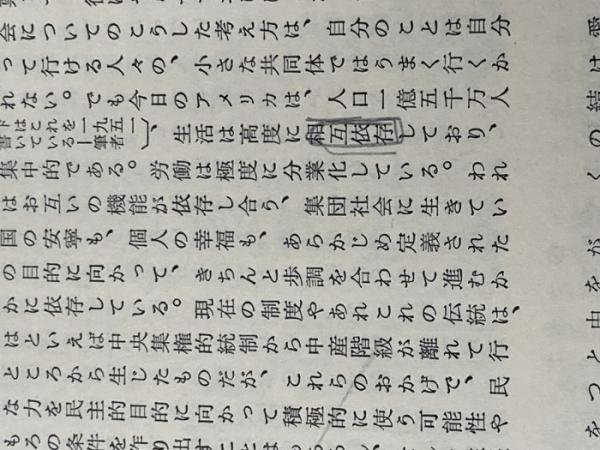 会についてのこうした考え方は、自分のことは自分
って行ける人々の、小さな共同体ではうまく行くか
れない。でも今日のアメリカは、人口一億五千万人
ドはこれを一九五一
書いている―筆者〕、生活は高度に相互依存しており、
集中的である。労働は極度に分業化している。われ
はお互いの機能が依存し合う、集団社会に生きてい
国の安寧も、個人の幸福も、あらかじめ定義された
の目的に向かって、きちんと歩調を合わせて進むか
かに依存している。現在の制度やあれこれの伝統は、
はといえば中央集権的統制から中産階級が離れて行
ところから生じたものだが、これらのおかげで、民
な力を民主的目的に向かって積極的に使う可能性や
もろの条件を作り出すことは